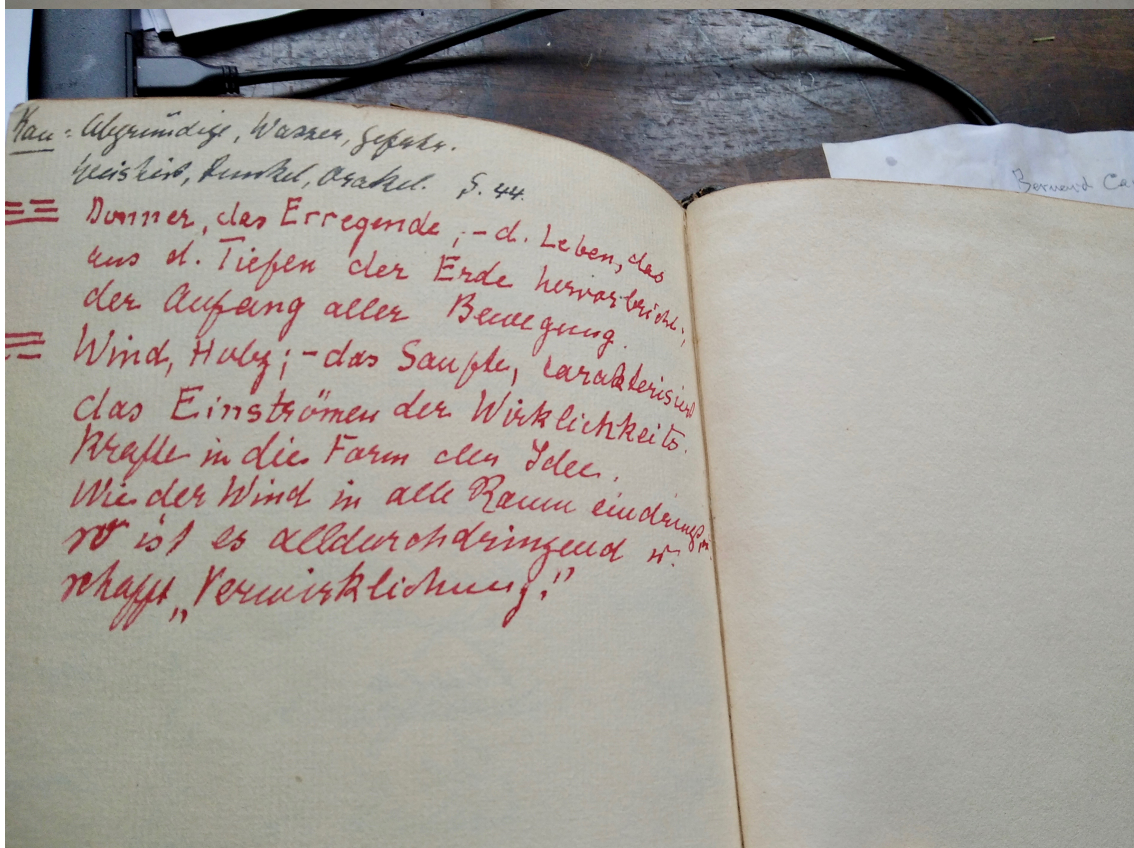 Kan = Abgründige, Wasser, Gefahr.
Dunkel, Orakel. S. 44.
Donner, das Erregende; - d. Leben, das
aus d. Tiefen der Erde hervorbricht;
der Anfang aller Bewegung.
Wind, Holz; - das Sanfte, carakterisiert
das Einströmen der Wirklichkeits-
Kräfte in die Form der Idee.
Wie der Wind in alle Räum eindringt,
so ist es alldurchdringend u.
schafft „Verwirklichung."
Bernard Ca